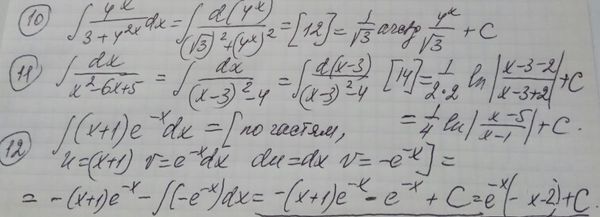 10) ∫ y^x / (3 + y^{2x}) dx = ∫ d(y^x) / ((√3)² + (y^x)²) = [12] = 1/√3 arctg y^x/√3 + C
11) ∫ dx / (x² - 6x + 5) = ∫ dx / ((x-3)² - 4) = ∫ d(x-3) / ((x-3)² - 4) [14] = 1/(2·2) ln |(x-3-2)/(x-3+2)| + C
= 1/4 ln |(x-5)/(x-1)| + C.
12) ∫ (x+1) e^{-x} dx = [по частям,
u = (x+1) v = e^{-x} dx du = dx v = -e^{-x}] =
= -(x+1) e^{-x} - ∫ (-e^{-x}) dx = -(x+1) e^{-x} - e^{-x} + C = e^{-x} (-x-2) + C.